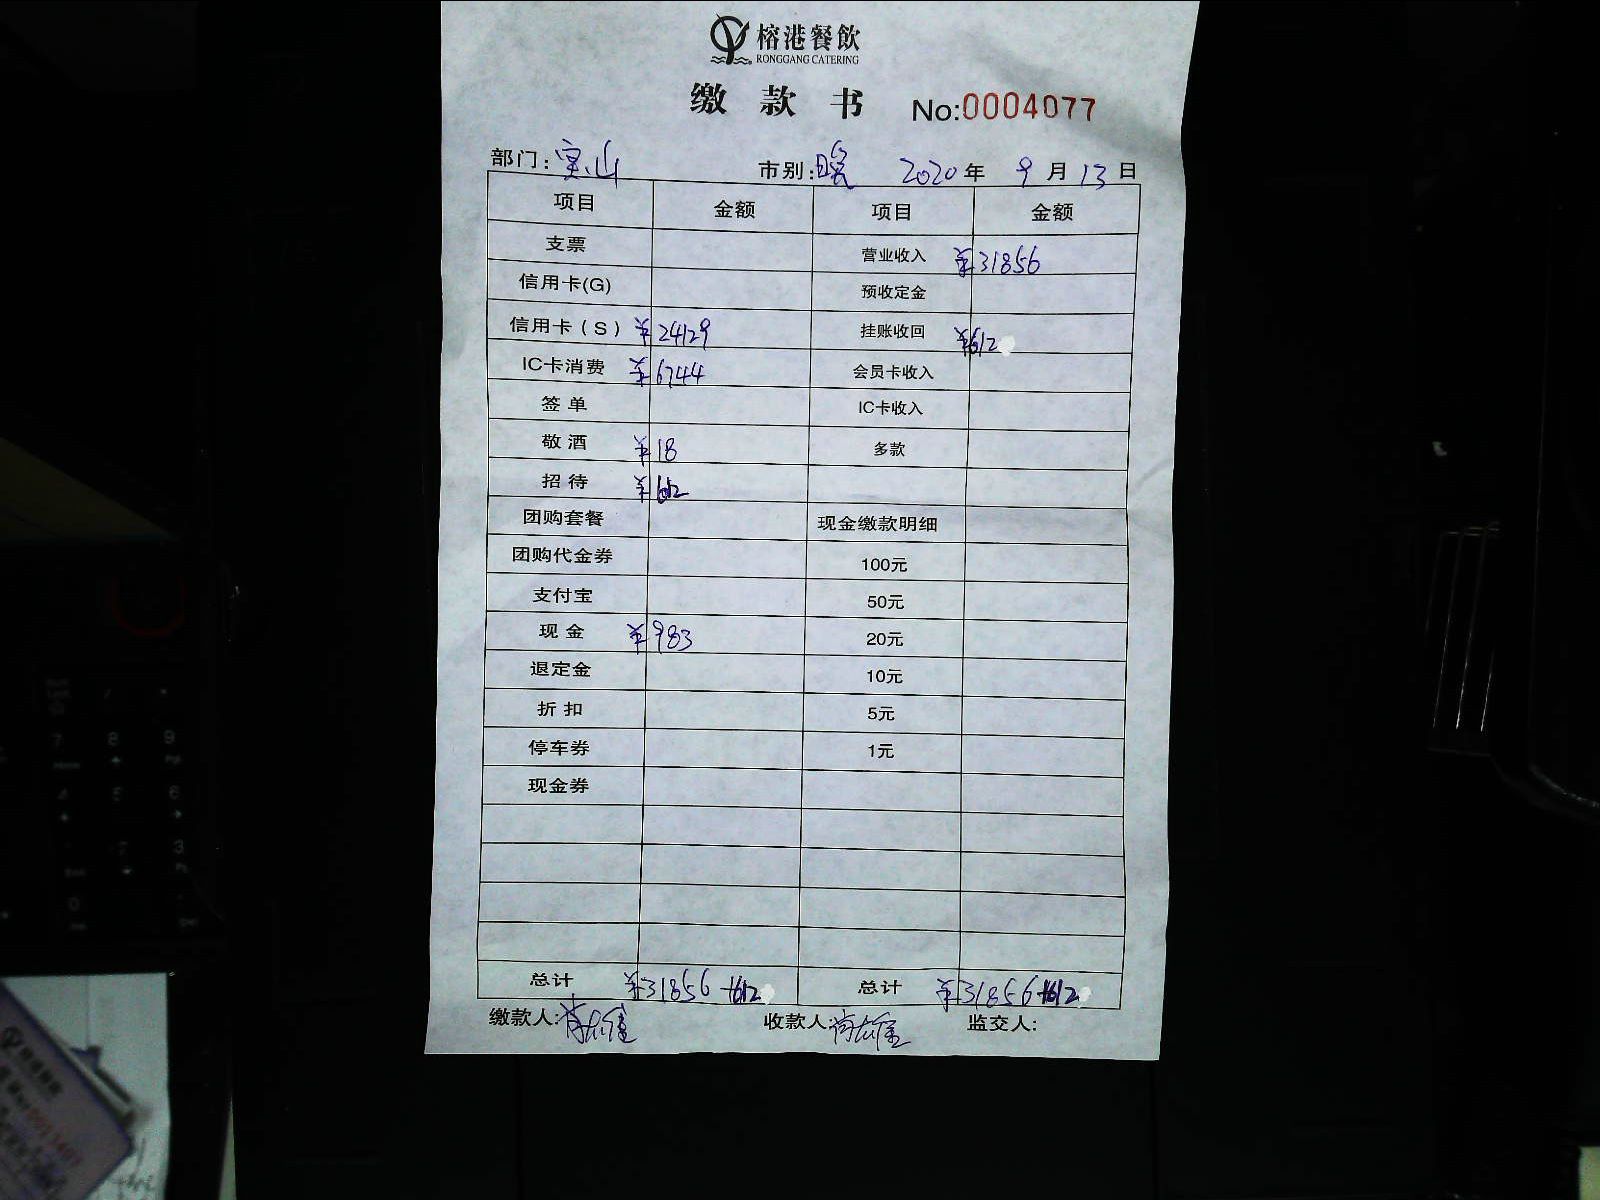 榕港餐飲
RONGGANG CATERING
缴款书 No:0004077
部门:宝山 市别:晚 2020年9月13日
项目 金额 项目 金额
支票 营业收入 ¥31856
信用卡(G) 预收定金
信用卡(S) ¥24129 挂账收回 ¥612
IC卡消费 ¥6744 会员卡收入
签单 IC卡收入
敬酒 ¥18 多款
招待 ¥612
团购套餐 现金缴款明细
团购代金券 100元
支付宝 50元
现金 ¥983 20元
退定金 10元
折扣 5元
停车券 1元
现金券
总计 ¥31856+612 总计 ¥31856+612
缴款人: 收款人: 监交人: